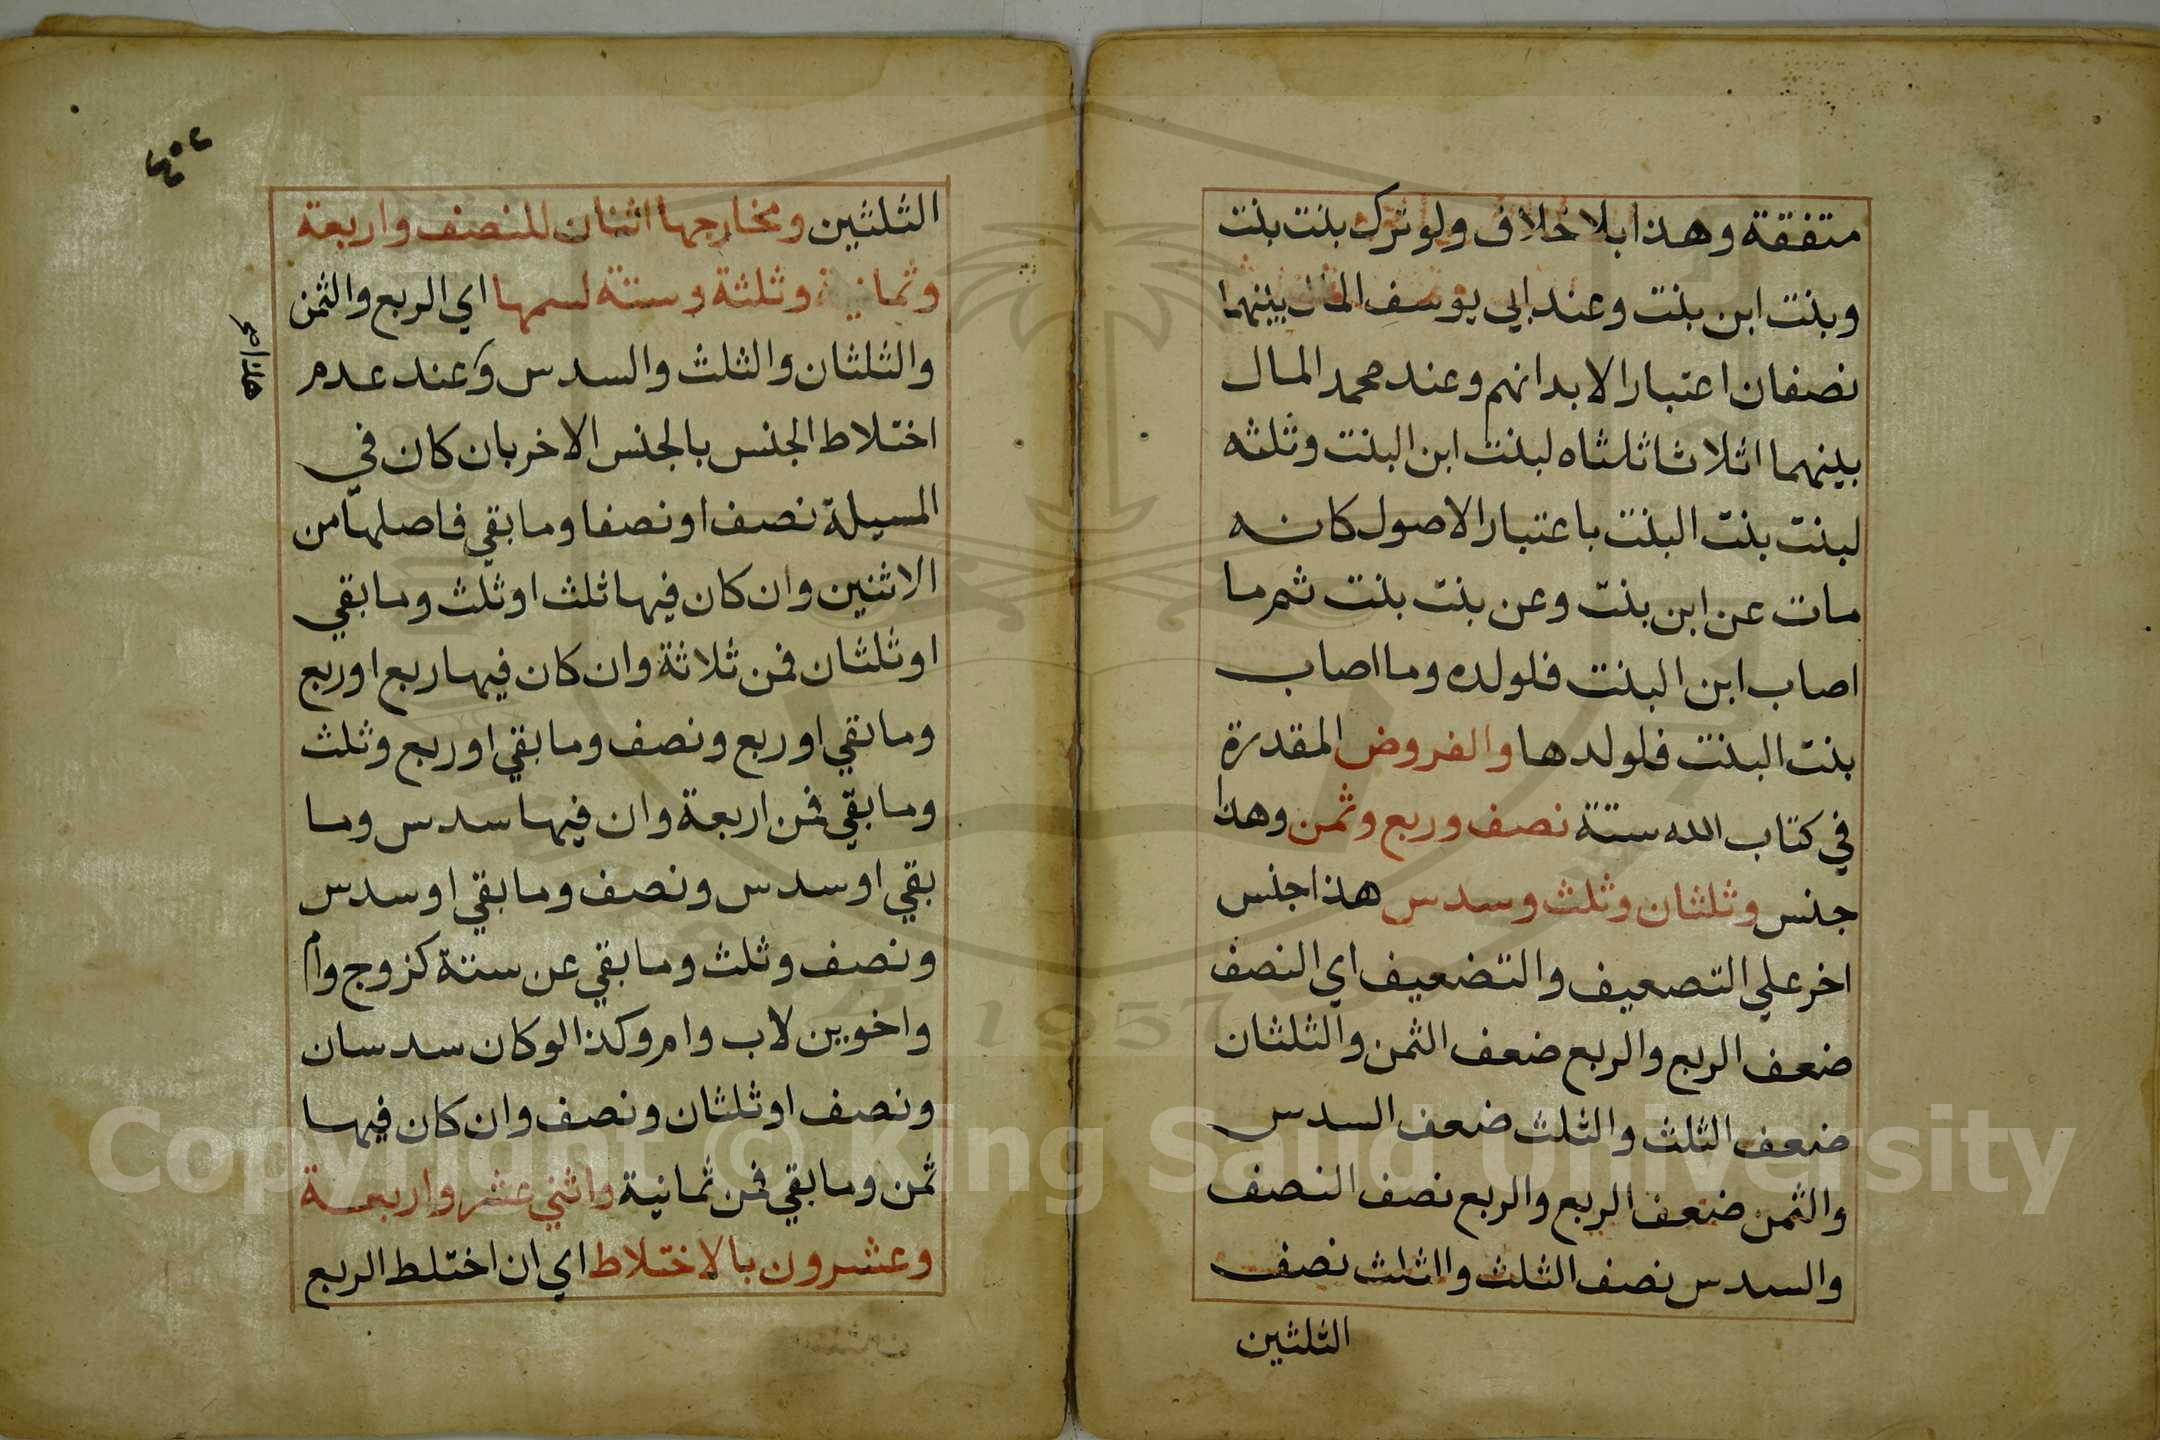 متفقة وهذا بلا خلاف ولو ترك بنت بنت
وبنت ابن بنت وعند ابي يوسف المال بينهما
نصفان اعتبارا لابدانهم وعند محمد المال
بينهما اثلاثا ثلثاه لبنت ابن البنت وثلثه
لبنت بنت البنت باعتبار الاصول كانه
مات عن ابن بنت وعن بنت بنت ثم ما
اصاب ابن البنت فلولده وما اصاب
بنت البنت فلولدها والفروض المقدرة
في كتاب الله ستة نصف وربع وثمن وهذا
جنس وثلثان وثلث وسدس هذا جنس
اخر علي التصعيف والتضعيف اي النصف
ضعف الربع والربع ضعف الثمن والثلثان
ضعف الثلث والثلث ضعف السدس
والثمن ضعف الربع والربع نصف النصف
والسدس نصف الثلث والثلث نصف
الثلثين
الثلثين ومخارجها اثنان للنصف واربعة
وثمانية وثلثة وستة لسمها اي الربع والثمن
والثلثان والثلث والسدس وعند عدم
اختلاط الجنس بالجنس الاخر بان كان في
المسيلة نصف او نصفا وما بقي فاصلها من
الاثنين وان كان فيها ثلث او ثلث وما بقي
او ثلثان فمن ثلاثة وان كان فيها ربع او ربع
وما بقي او ربع ونصف وما بقي او ربع وثلث
وما بقي فمن اربعة وان فيها سدس وما
بقي او سدس ونصف وما بقي او سدس
ونصف وثلث وما بقي عن ستة كزوج وام
واخوين لاب وام وكذا لو كان سدسان
ونصف او ثلثان ونصف وان كان فيها
ثمن وما بقي فمن ثمانية واثني عشر واربعة
وعشرون بالاختلاط اي ان اختلط الربع
1957
Copyright © King Saud University